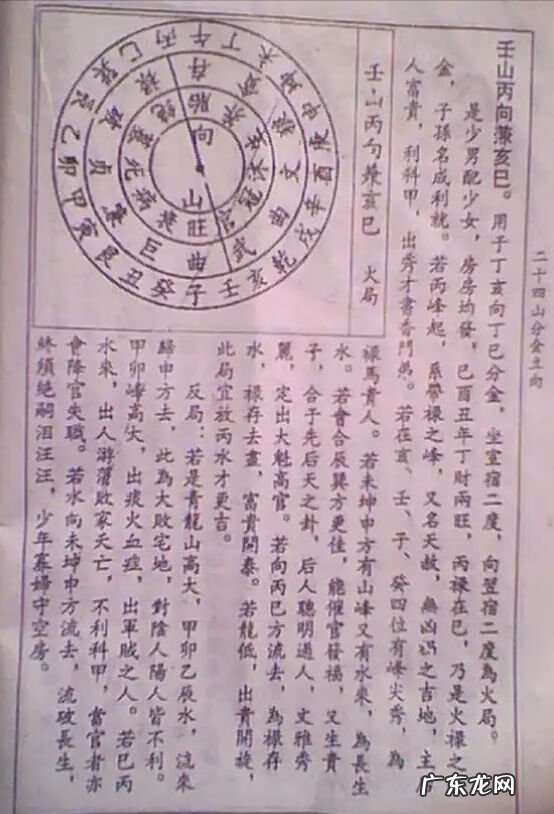 二十四山分金立向
壬山丙向兼亥巳。用于丁亥向丁巳分金，坐室宿二度，向翌宿二度為火局。
是少男配少女，房房均發，己酉丑年丁財兩旺，丙祿在巳，乃是火祿之
金，子孫名成利就。若丙峰起，系帶祿之峰，又名天赦，無凶禍之吉地，主
人富貴，利科甲，出秀才書香門第。若在亥、壬、子、癸四位有峰尖秀，為
祿馬貴人。若未坤申方有山峰又有水來，為長生
水。若會合辰巽方更佳，能催官發福，又生貴
子，合于先后天之卦，后人聰明過人，文雅秀
麗，定出大魁高官。若向丙巳方流去，為祿存
水，祿存去盡，富貴開泰。若龍低，出貴開旋，
此局宜放丙水才更吉。
反局：若是青龍山高大，甲卯乙辰水，流來
歸申方去，此為大敗宅地，對陰人陽人皆不利。
甲卯峰高大，出痰火血症，出軍賊之人。若巳丙
水來，出人游蕩敗家夭亡，不利科甲，當官者亦
會降官失職。若水向未坤申方流去，流破長生，
終須絕嗣泪汪汪，少年寡婦守空房。
壬山丙向兼亥巳 火局
向
山
旺 衰 病 死 墓 絕 胎 养 沐 冠 官
曲 巨 廉 貞 破 祿 存 文 曲 武
子 癸 丑 艮 寅 甲 卯 乙 辰 巽 巳 丙 午 丁 未 坤 申 庚 酉 辛 戌 乾 亥 壬
广东龙网